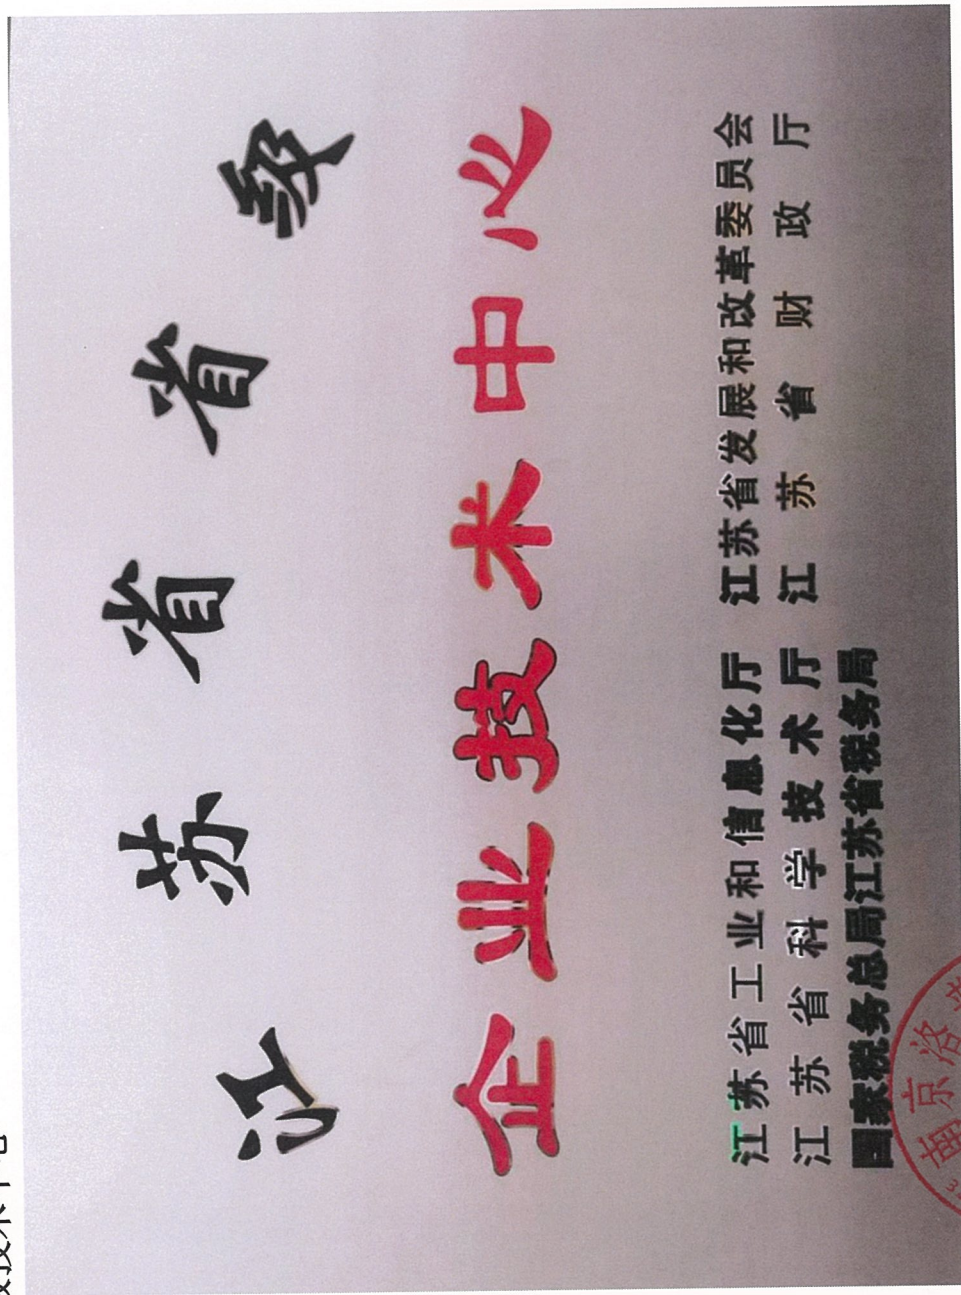 技术中心
江苏省省级
企业技术中心
江苏省工业和信息化厅 江苏省发展和改革委员会
江苏省科学技术厅 江苏省财政厅
国家税务总局江苏省税务局
南京洛